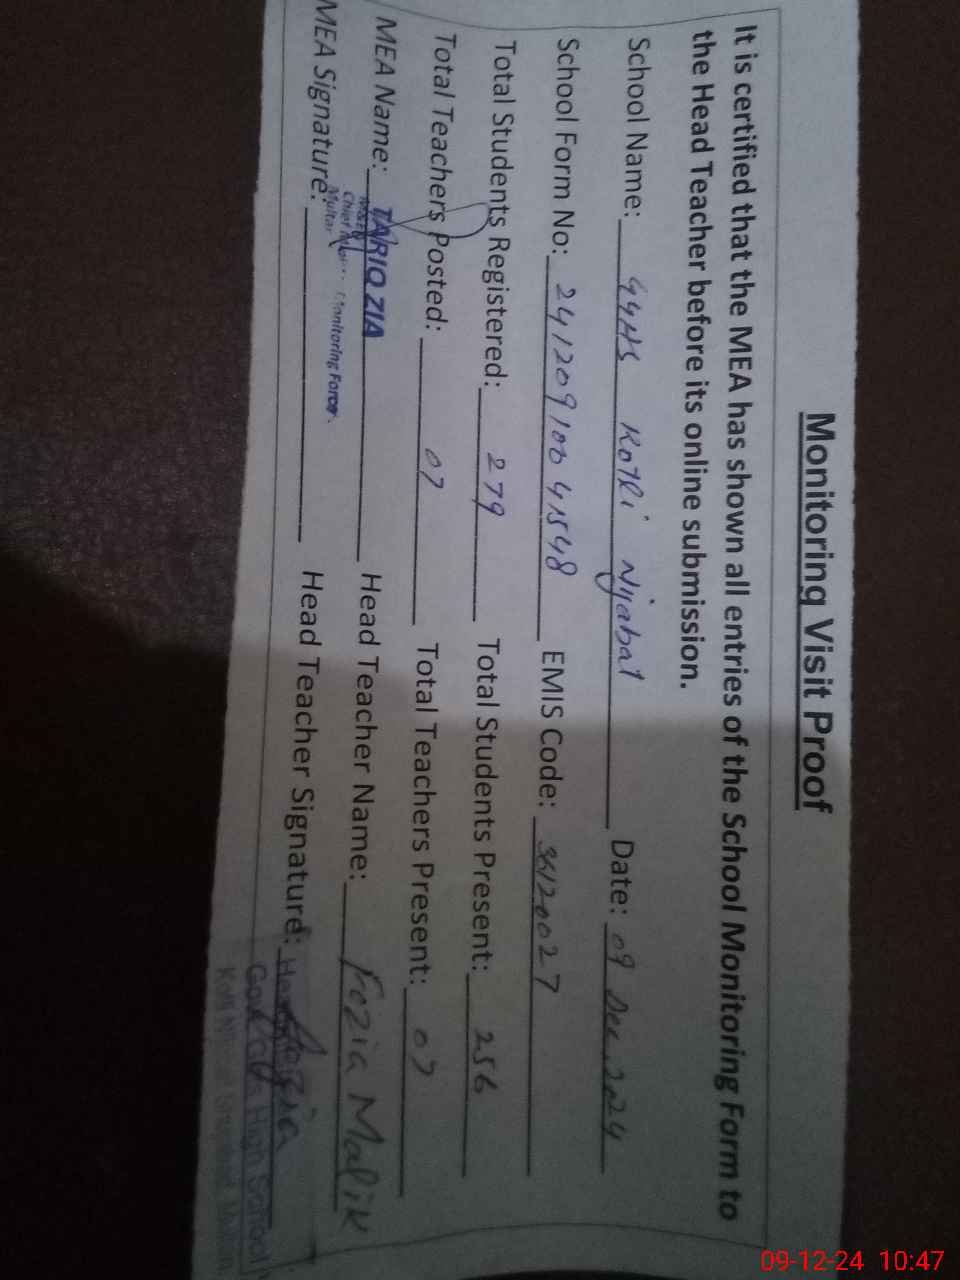 Monitoring Visit Proof
It is certified that the MEA has shown all entries of the School Monitoring Form to
the Head Teacher before its online submission.
School Name: GGHS Kotli Nijabat Date: 09 Dec. 2024
School Form No: 24120910041548 EMIS Code: 36120027
Total Students Registered: 279 Total Students Present: 256
Total Teachers Posted: 07 Total Teachers Present: 07
MEA Name: TARIQ ZIA Head Teacher Name: Fozia Malik
Monitoring Force
Multan
MEA Signature: Head Teacher Signature: Fozia
High School
Multan
09-12-24 10:47